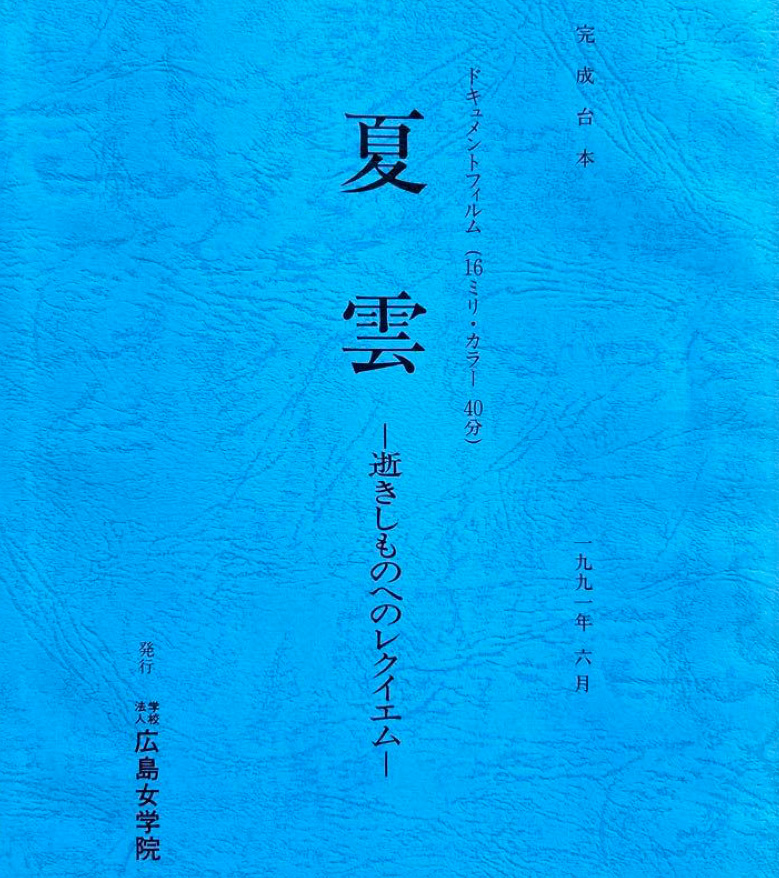 完成台本
一九九一年 六月
ドキュメントフィルム (16ミリ・カラー 40分)
夏雲
―逝きしものへのレクイエム―
発行
学校法人
広島女学院